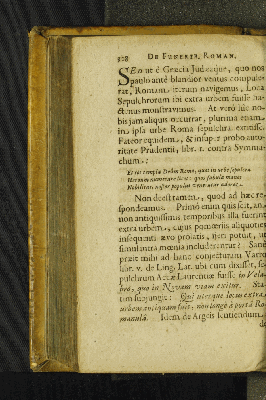 328 DE FUNERIB. ROMAN.
SEd ut è Græcia Judæaque, quo nos
paulo ante blandior ventus compule-
rat, Romam iterum navigemus, Loca
Sepulchrorum ibi extra urbem fuisse ha-
ctenus monstravimus. At verò hîc no-
bis jam aliquis occurrat, plurima etiam
in ipsa urbe Roma sepulchra extitisse.
Fateor equidem, & insuper probo auto-
ritate Prudentii, libr. 1. contra Symma-
chum:
Et tot templa Deûm Romæ, quot in urbe sepulcra
Heroum numerare licet: quos fabula manes
Nobilitat, noster populus veneratus adorat.
Non deest tamen, quod ad hæc re-
spondeamus. Primò enim quis scit, an
non antiquissimis temporibus illa fuerint
extra urbem, cujus pomœriis aliquoties
insequenti ævo prolatis, item potuit, ut
simul intra mœnia includerentur? Sanè
præit mihi ad hanc conjecturam Varro
libr. v. de Ling. Lat. ubi cum dixisset, se-
pulchrum Accæ Laurentiæ fuisse in Vela-
bro, quo in Novam viam exitur, Sta-
tim subjungit: Qui uterque locus extra
urbem antiquam fuit, non longè à porta Ro-
manulâ. Idem de Argeis sentiendum,